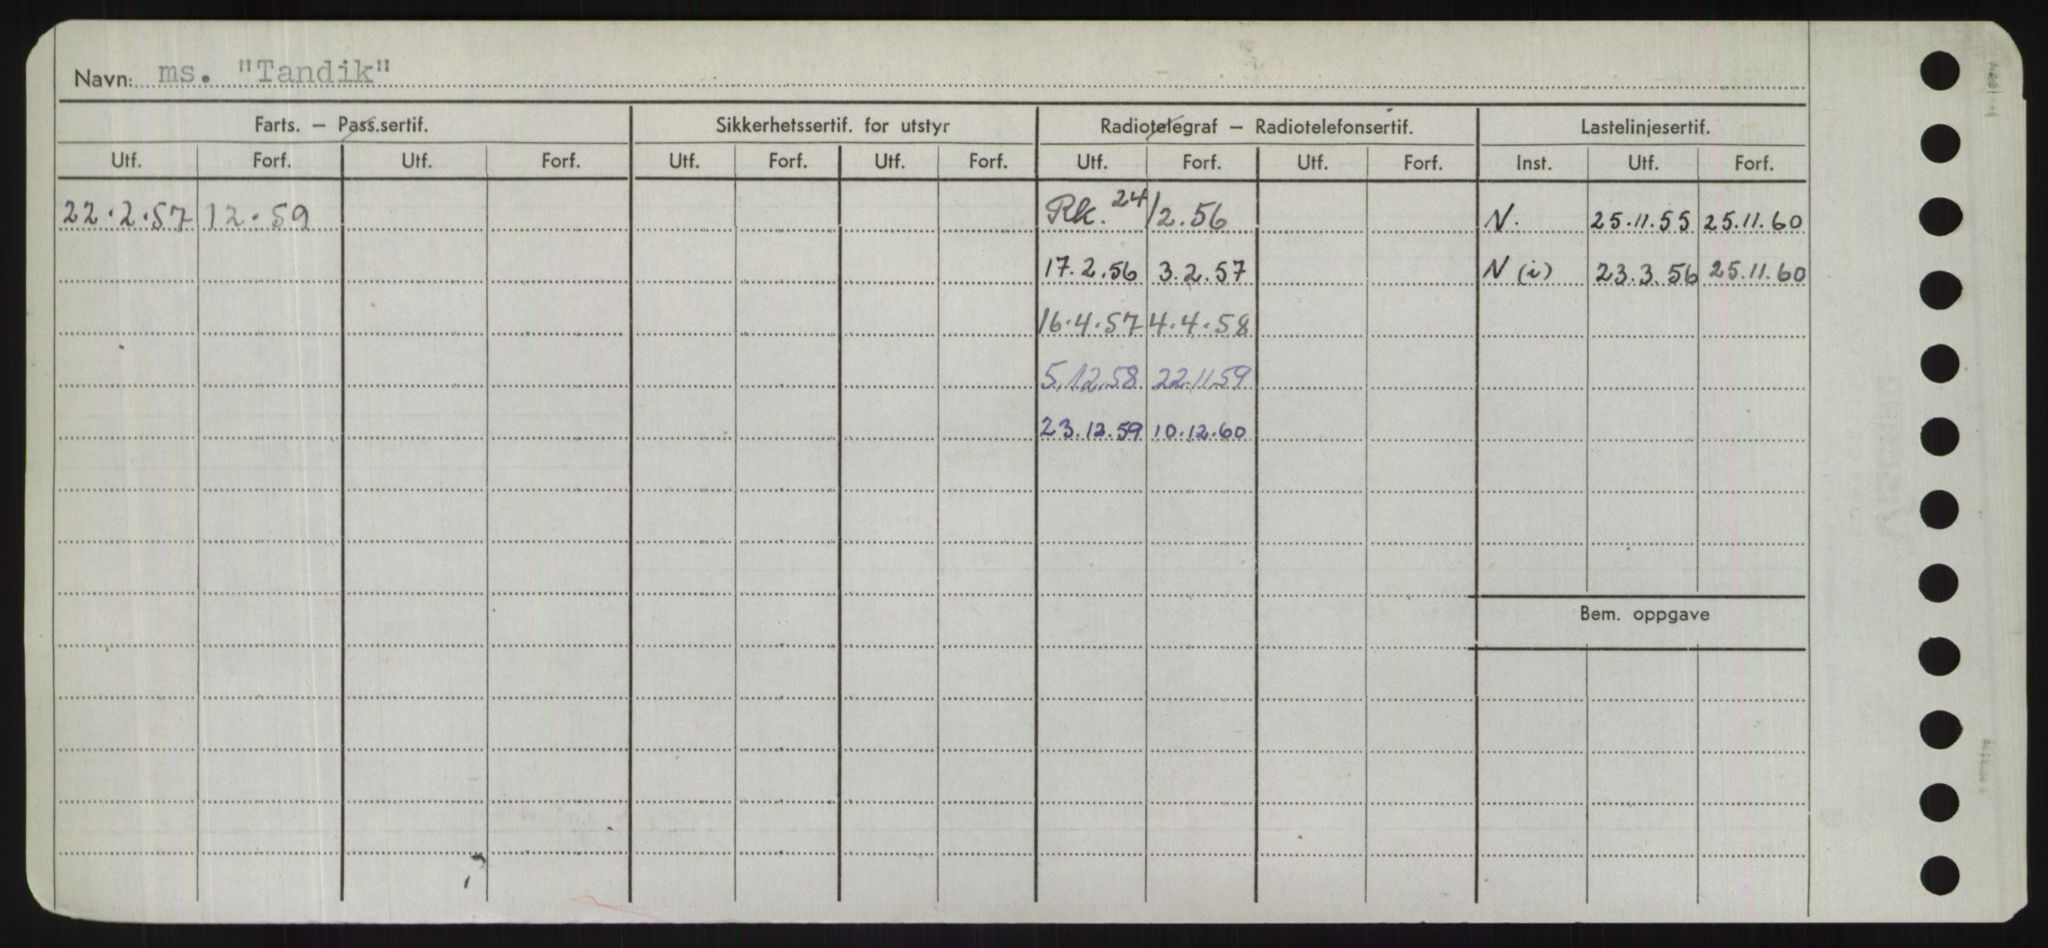 Navn: ms. "Tandik"
Farts. – Pass.sertif. Sikkerhetssertif. for utstyr Radiotelegraf – Radiotelefonsertif. Lastelinjesertif.
Utf. Forf. Utf. Forf. Utf. Forf. Utf. Forf. Utf. Forf. Utf. Forf. Inst. Utf. Forf.
22.2.57 12.59 Rk. 24/2.56 N. 25.11.55 25.11.60
17.2.56 3.2.57 N (i) 23.3.56 25.11.60
16.4.57 4.4.58
5.12.58 22.11.59
23.12.59 10.12.60
Bem. oppgave